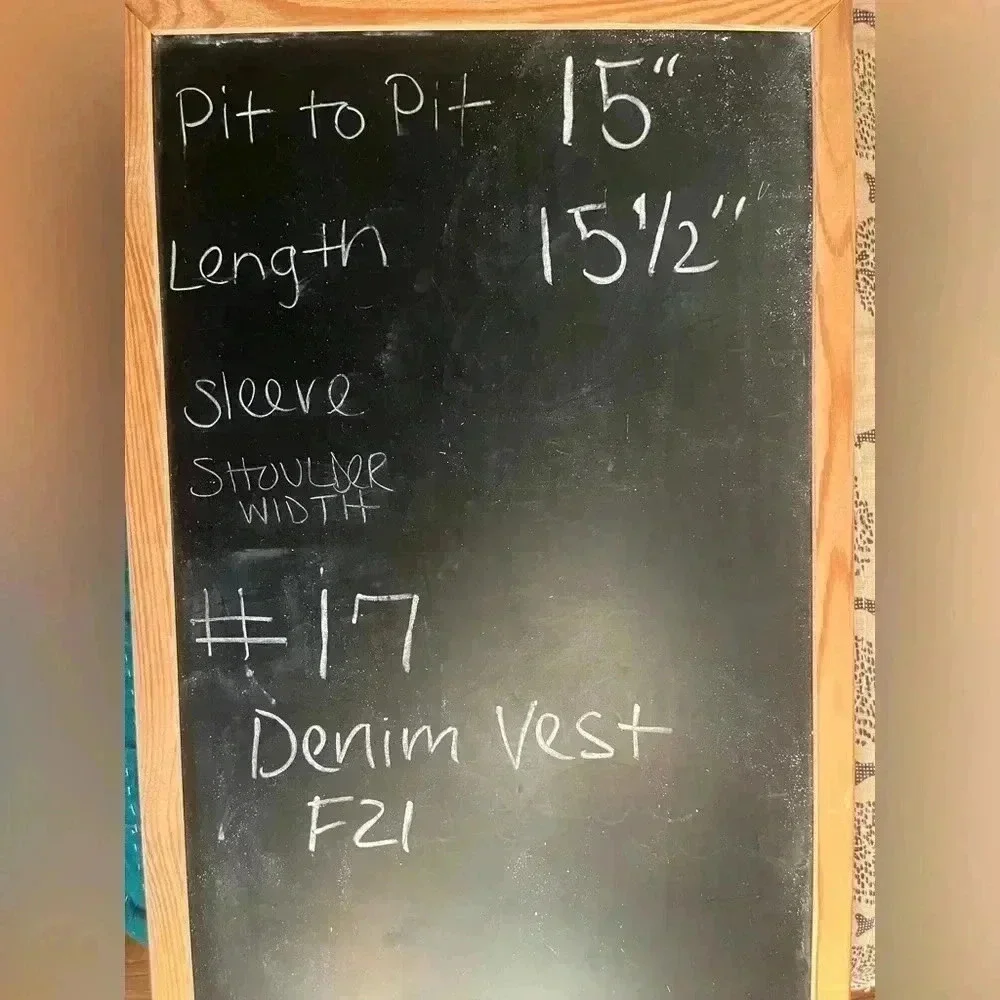 Pit to Pit 15"
Length 15 1/2"
sleeve
SHOULDER
WIDTH
#17
Denim Vest
F21